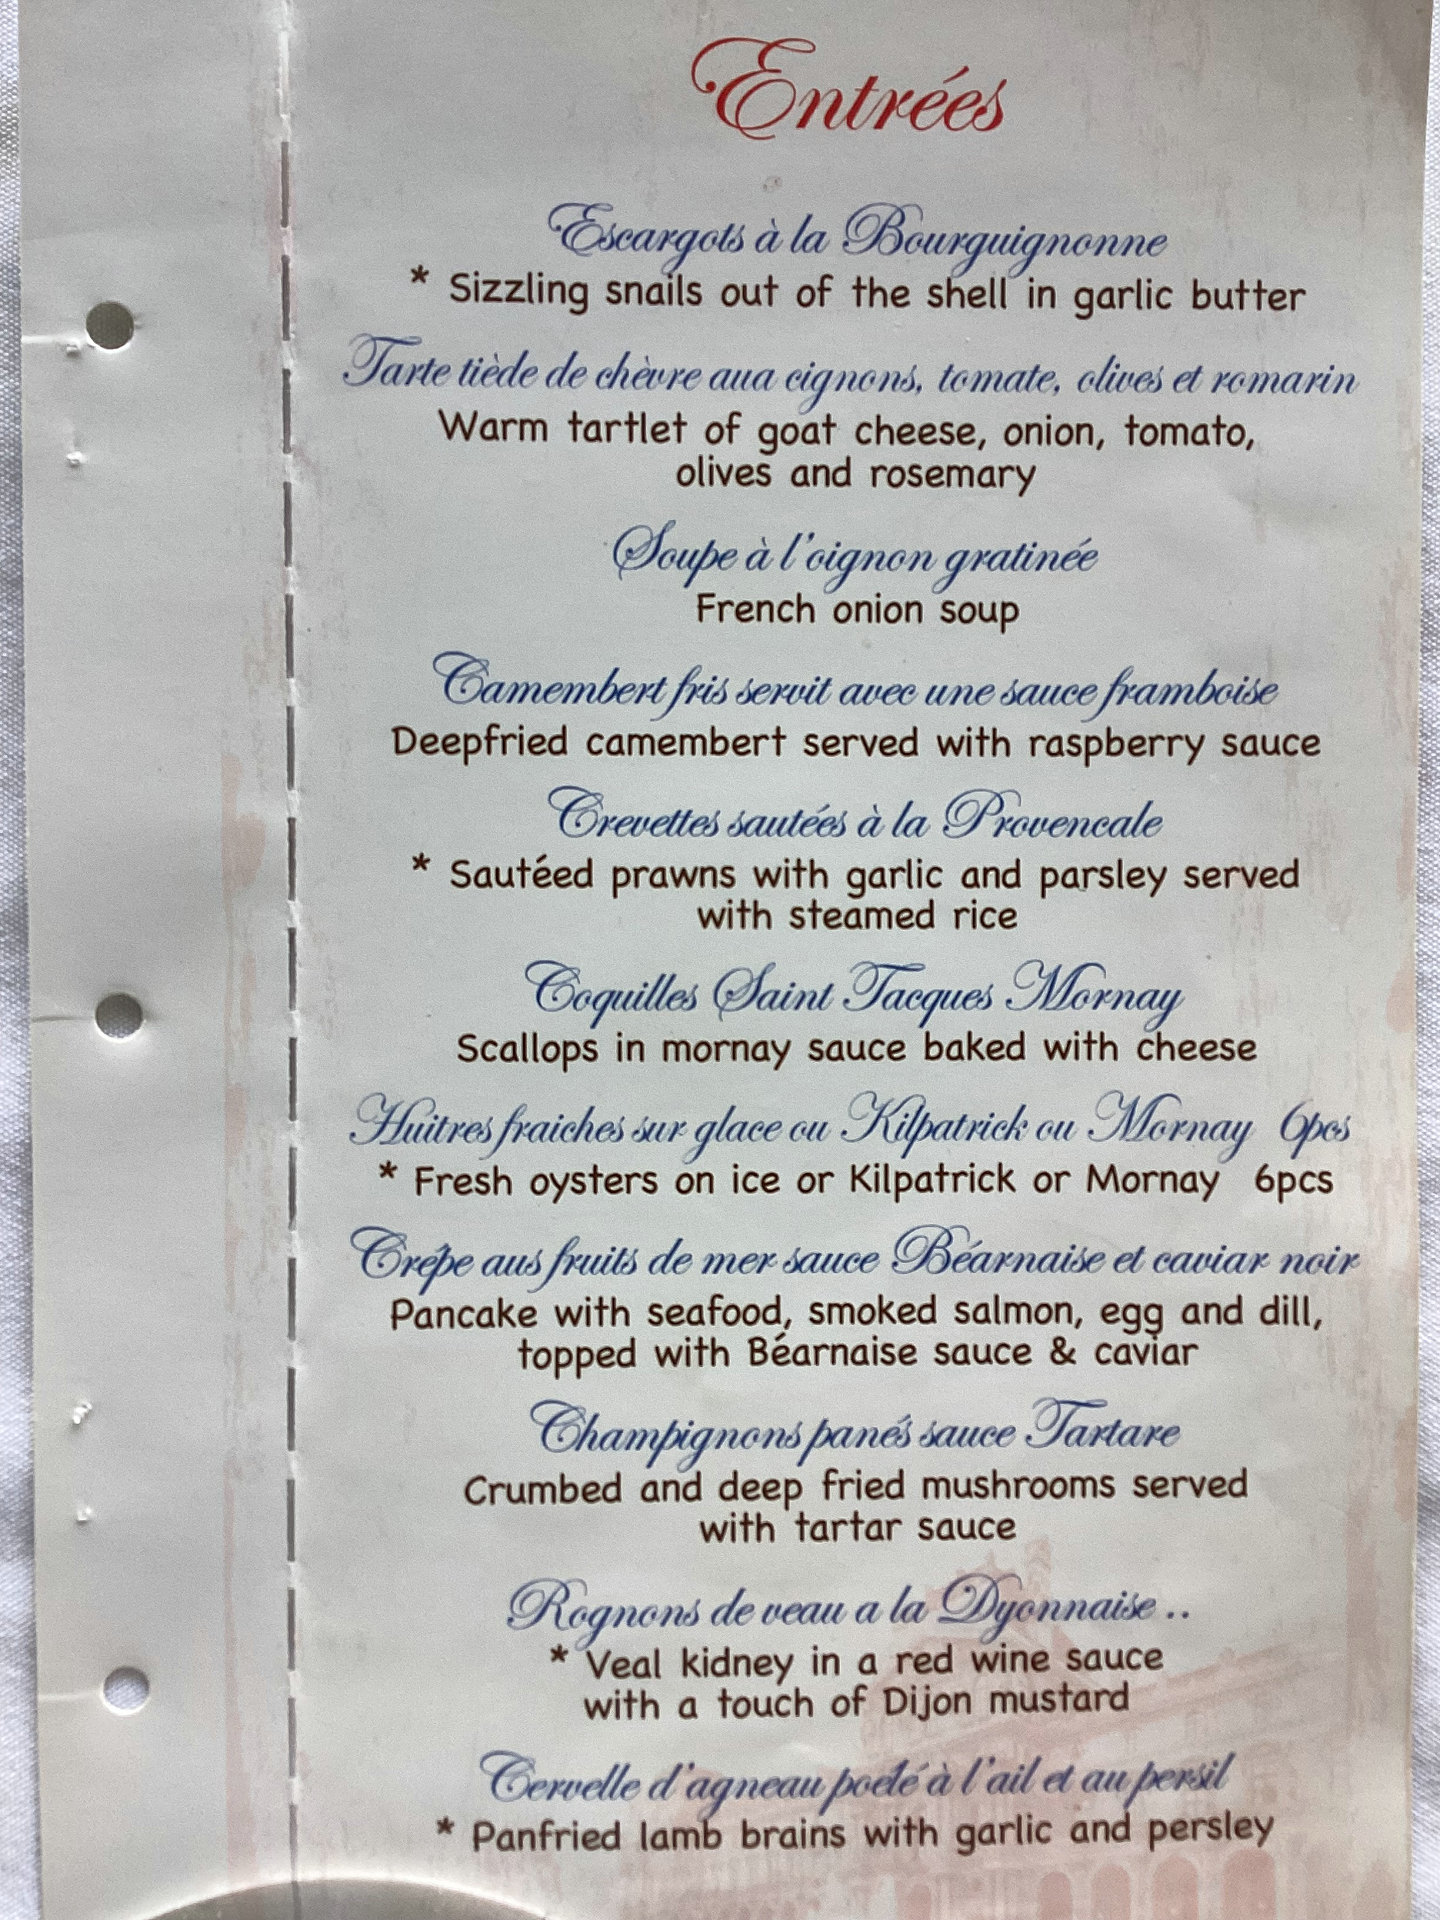 Entrées
Escargots à la Bourguignonne
* Sizzling snails out of the shell in garlic butter
Tarte tiède de chèvre aua oignons, tomate, olives et romarin
Warm tartlet of goat cheese, onion, tomato,
olives and rosemary
Soupe à l'oignon gratinée
French onion soup
Camembert fris servit avec une sauce framboise
Deepfried camembert served with raspberry sauce
Crevettes sautées à la Provencale
* Sautéed prawns with garlic and parsley served
with steamed rice
Coquilles Saint Tacques Mornay
Scallops in mornay sauce baked with cheese
Huitres fraiches sur glace ou Kilpatrick ou Mornay 6pcs
* Fresh oysters on ice or Kilpatrick or Mornay 6pcs
Crêpe aus fruits de mer sauce Béarnaise et caviar noir
Pancake with seafood, smoked salmon, egg and dill,
topped with Béarnaise sauce & caviar
Champignons panés sauce Tartare
Crumbed and deep fried mushrooms served
with tartar sauce
Rognons de veau a la Dyonnaise ..
* Veal kidney in a red wine sauce
with a touch of Dijon mustard
Cervelle d'agneau poélé à l'ail et au persil
* Panfried lamb brains with garlic and persley